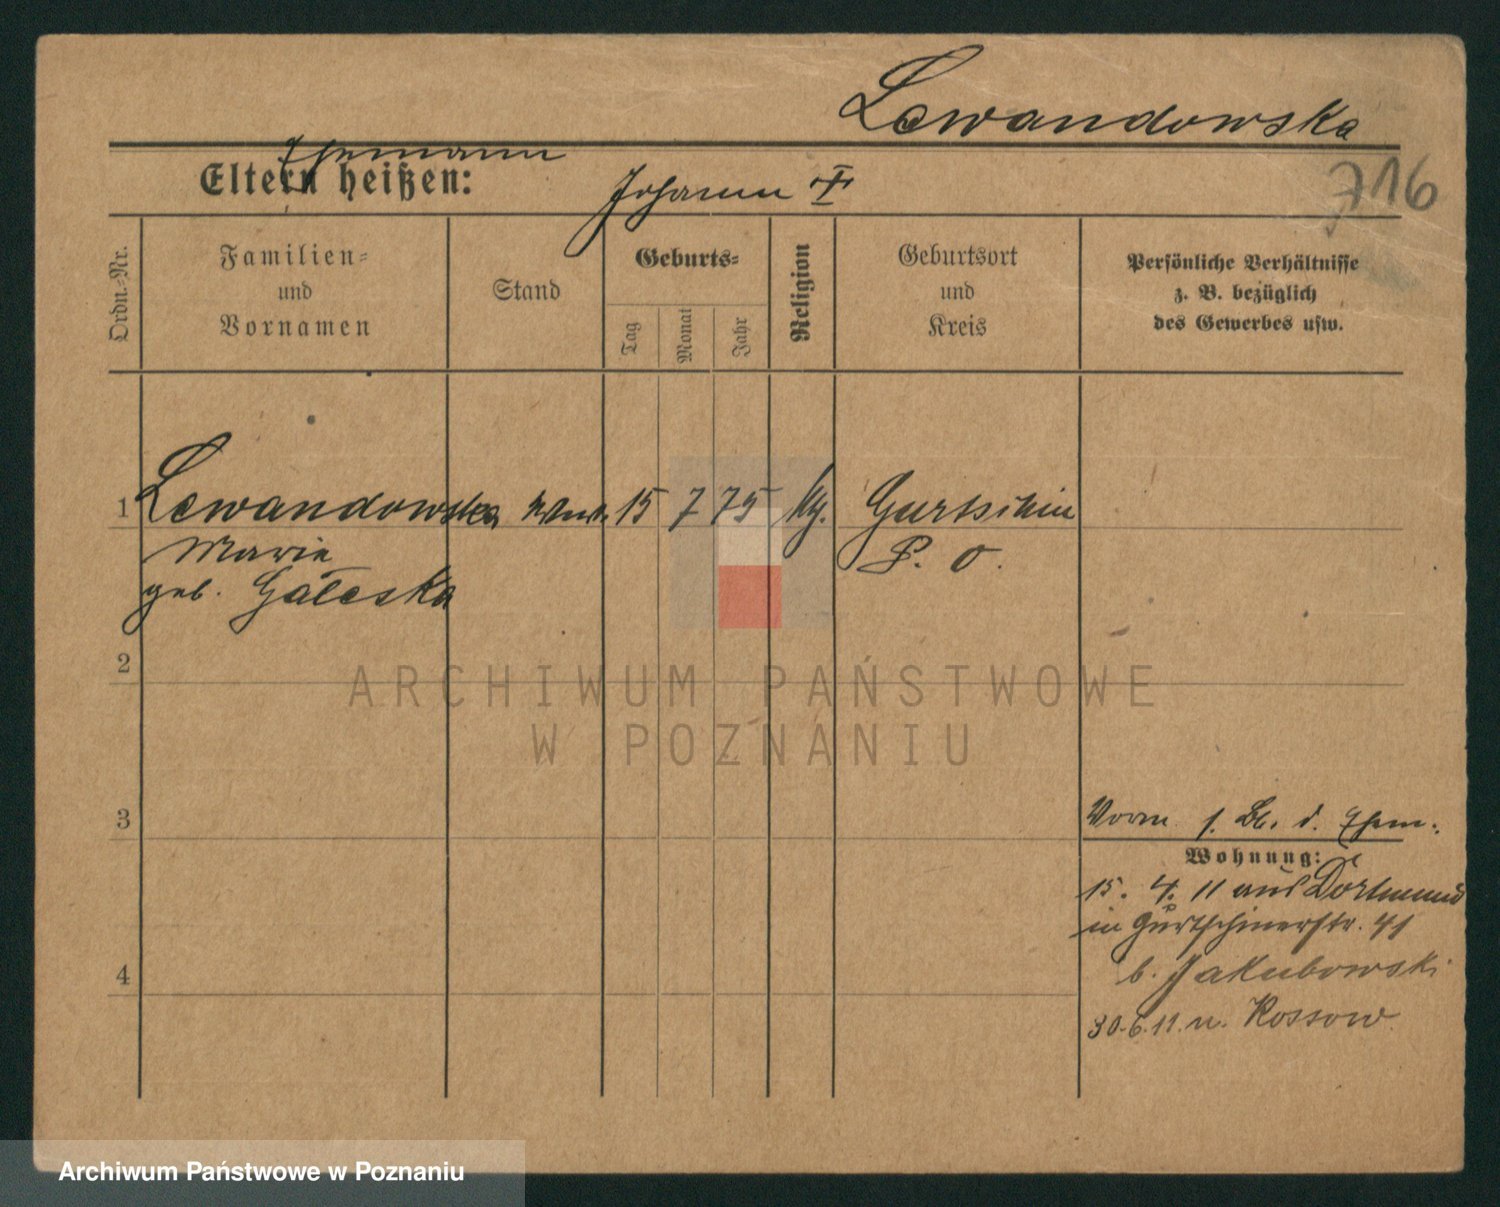 Lewandowska
Ehemann
Eltern heißen: Johann †
716
Ordn.-Nr.
Familien-
und
Vornamen
Stand
Geburts-
Tag
Monat
Jahr
Religion
Geburtsort
und
Kreis
Persönliche Verhältnisse
z. B. bezüglich
des Gewerbes usw.
1 Lewandowska 15 7 75 kg. Gurtschin
Marie P. O.
geb. Gałeska
2
ARCHIWUM PAŃSTWOWE
W POZNANIU
3
Vorm. s. Bl. d. Ehem.
Wohnung:
15. 4. 11 aus Dortmund
in Gurtschinerstr. 41
4
b. Jakubowski
30.6.11. n. Kossow
Archiwum Państwowe w Poznaniu